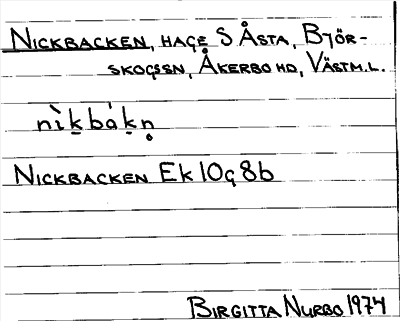 NICKBACKEN, HAGE S ÅSTA, BJÖR-
SKOGSSN, ÅKERBO HD, VÄSTM.L.
nìk̠bák̠n̥
NICKBACKEN Ek 10g 8b
BIRGITTA NURBO 1974